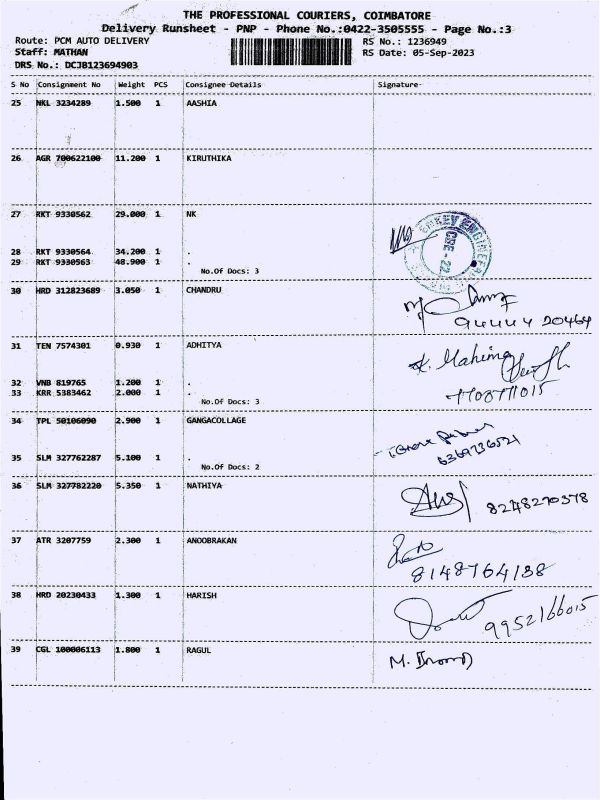 THE PROFESSIONAL COURIERS, COIMBATORE
Delivery Runsheet - PNP - Phone No.:0422-3505555 - Page No.:3
Route: PCM AUTO DELIVERY RS No.: 1236949
Staff: MATHAN RS Date: 05-Sep-2023
DRS No.: DCJB123694903
S No Consignment No Weight PCS Consignee Details Signature
25 NKL 3234289 1.500 1 AASHIA
26 AGR 700622100 11.200 1 KIRUTHIKA
27 RKT 9330562 29.000 1 NK
28 RKT 9330564 34.200 1 .
29 RKT 9330563 48.900 1 .
No.Of Docs: 3
30 HRD 312823689 3.050 1 CHANDRU
94444 20464
31 TEN 7574301 0.930 1 ADHITYA
K. Mahima
32 VNB 819765 1.200 1 .
33 KRR 5383462 2.000 1 .
7708711015
No.Of Docs: 3
34 TPL 50106090 2.900 1 GANGACOLLAGE
6369736521
35 SLM 327762287 5.100 1 .
No.Of Docs: 2
36 SLM 327782220 5.350 1 NATHIYA
8248270378
37 ATR 3207759 2.300 1 ANOOBRAKAN
8148764138
38 HRD 20230433 1.300 1 HARISH
9952166015
39 CGL 100006113 1.800 1 RAGUL